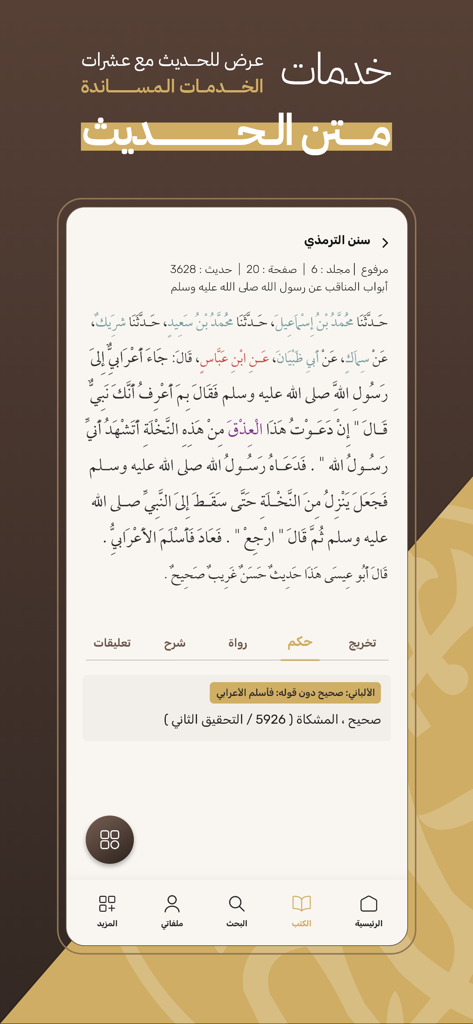 خدمات
عرض للحديث مع عشرات
الخدمات المساندة
متن الحديث
سنن الترمذي
مرفوع | مجلد : 6 | صفحة : 20 | حديث : 3628
أبواب المناقب عن رسول الله صلى الله عليه وسلم
حَدَّثَنَا مُحَمَّدُ بْنُ إِسْمَاعِيلَ، حَدَّثَنَا مُحَمَّدُ بْنُ سَعِيدٍ، حَدَّثَنَا شَرِيكٌ،
عَنْ سِمَاكٍ، عَنْ أَبِي ظَبْيَانَ، عَنِ ابْنِ عَبَّاسٍ، قَالَ: جَاءَ أَعْرَابِيٌّ إِلَى
رَسُولِ اللَّهِ صلى الله عليه وسلم فَقَالَ بِمَ أَعْرِفُ أَنَّكَ نَبِيٌّ
قَالَ " إِنْ دَعَوْتُ هَذَا الْعِذْقَ مِنْ هَذِهِ النَّخْلَةِ أَتَشْهَدُ أَنِّي
رَسُولُ الله " . فَدَعَاهُ رَسُولُ الله صلى الله عليه وسلم
فَجَعَلَ يَنْزِلُ مِنَ النَّخْلَةِ حَتَّى سَقَطَ إِلَى النَّبِيِّ صلى الله
عليه وسلم ثُمَّ قَالَ " ارْجِعْ " . فَعَادَ فَأَسْلَمَ الأَعْرَابِيُّ .
قَالَ أَبُو عِيسَى هَذَا حَدِيثٌ حَسَنٌ غَرِيبٌ صَحِيحٌ .
تخريج حكم رواة شرح تعليقات
الألباني: صحيح دون قوله: فأسلم الأعرابي
صحيح ، المشكاة ( 5926 / التحقيق الثاني )
الرئيسية الكتب البحث ملفاتي المزيد